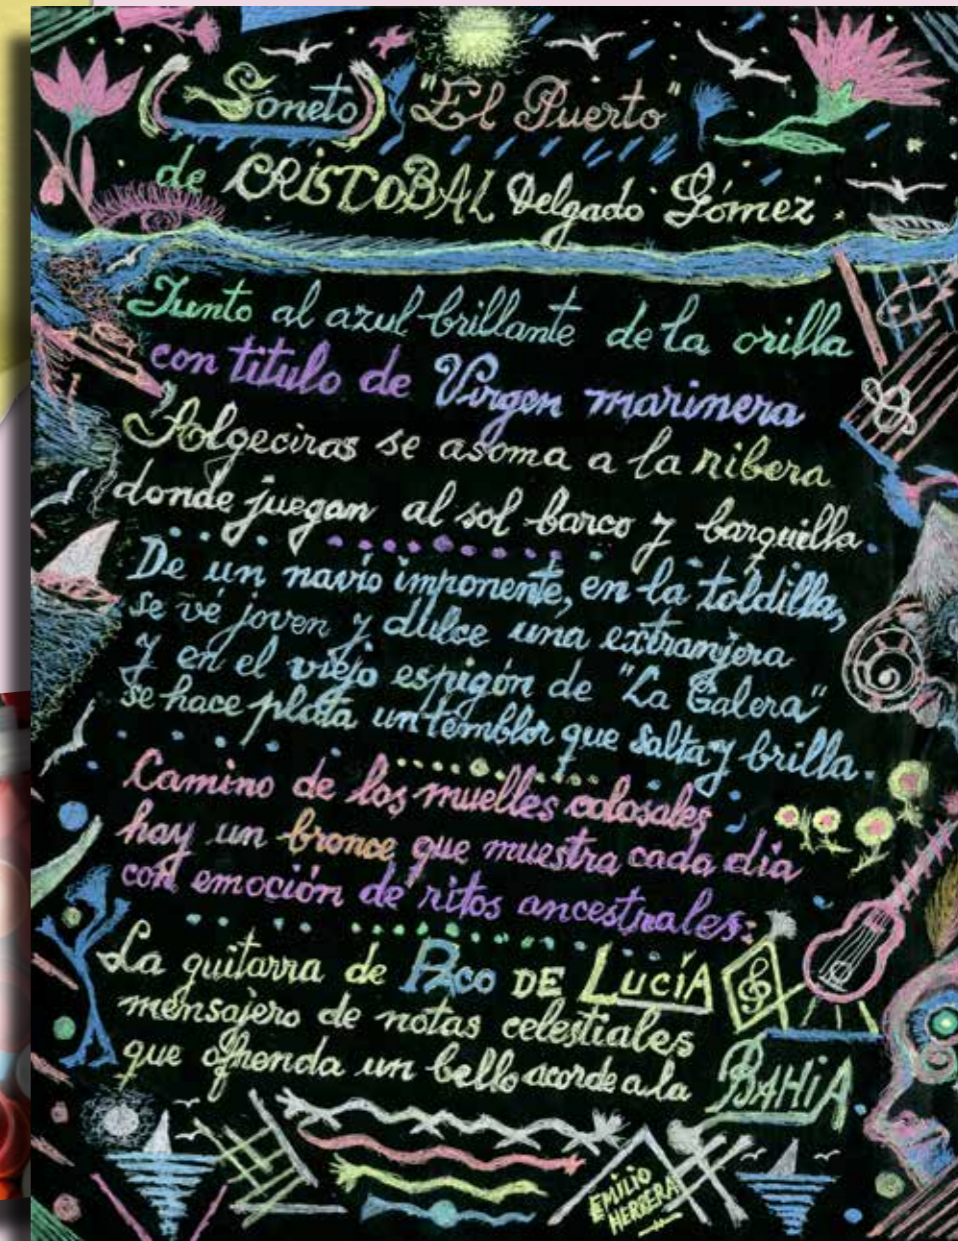 (Soneto) "El Puerto"
de CRISTOBAL Delgado Gómez.
Junto al azul brillante de la orilla
con titulo de Virgen marinera
Algeciras se asoma a la ribera
donde juegan al sol barco y barquilla.
De un navío imponente, en la toldilla,
se vé joven y dulce una extranjera
y en el viejo espigón de "La Galera"
se hace plata un temblor que salta y brilla.
Camino de los muelles colosales
hay un bronce que muestra cada día
con emoción de ritos ancestrales:
La guitarra de PACO DE LUCÍA
mensajero de notas celestiales
que ofrenda un bello acorde a la BAHIA
EMILIO
HERRERA